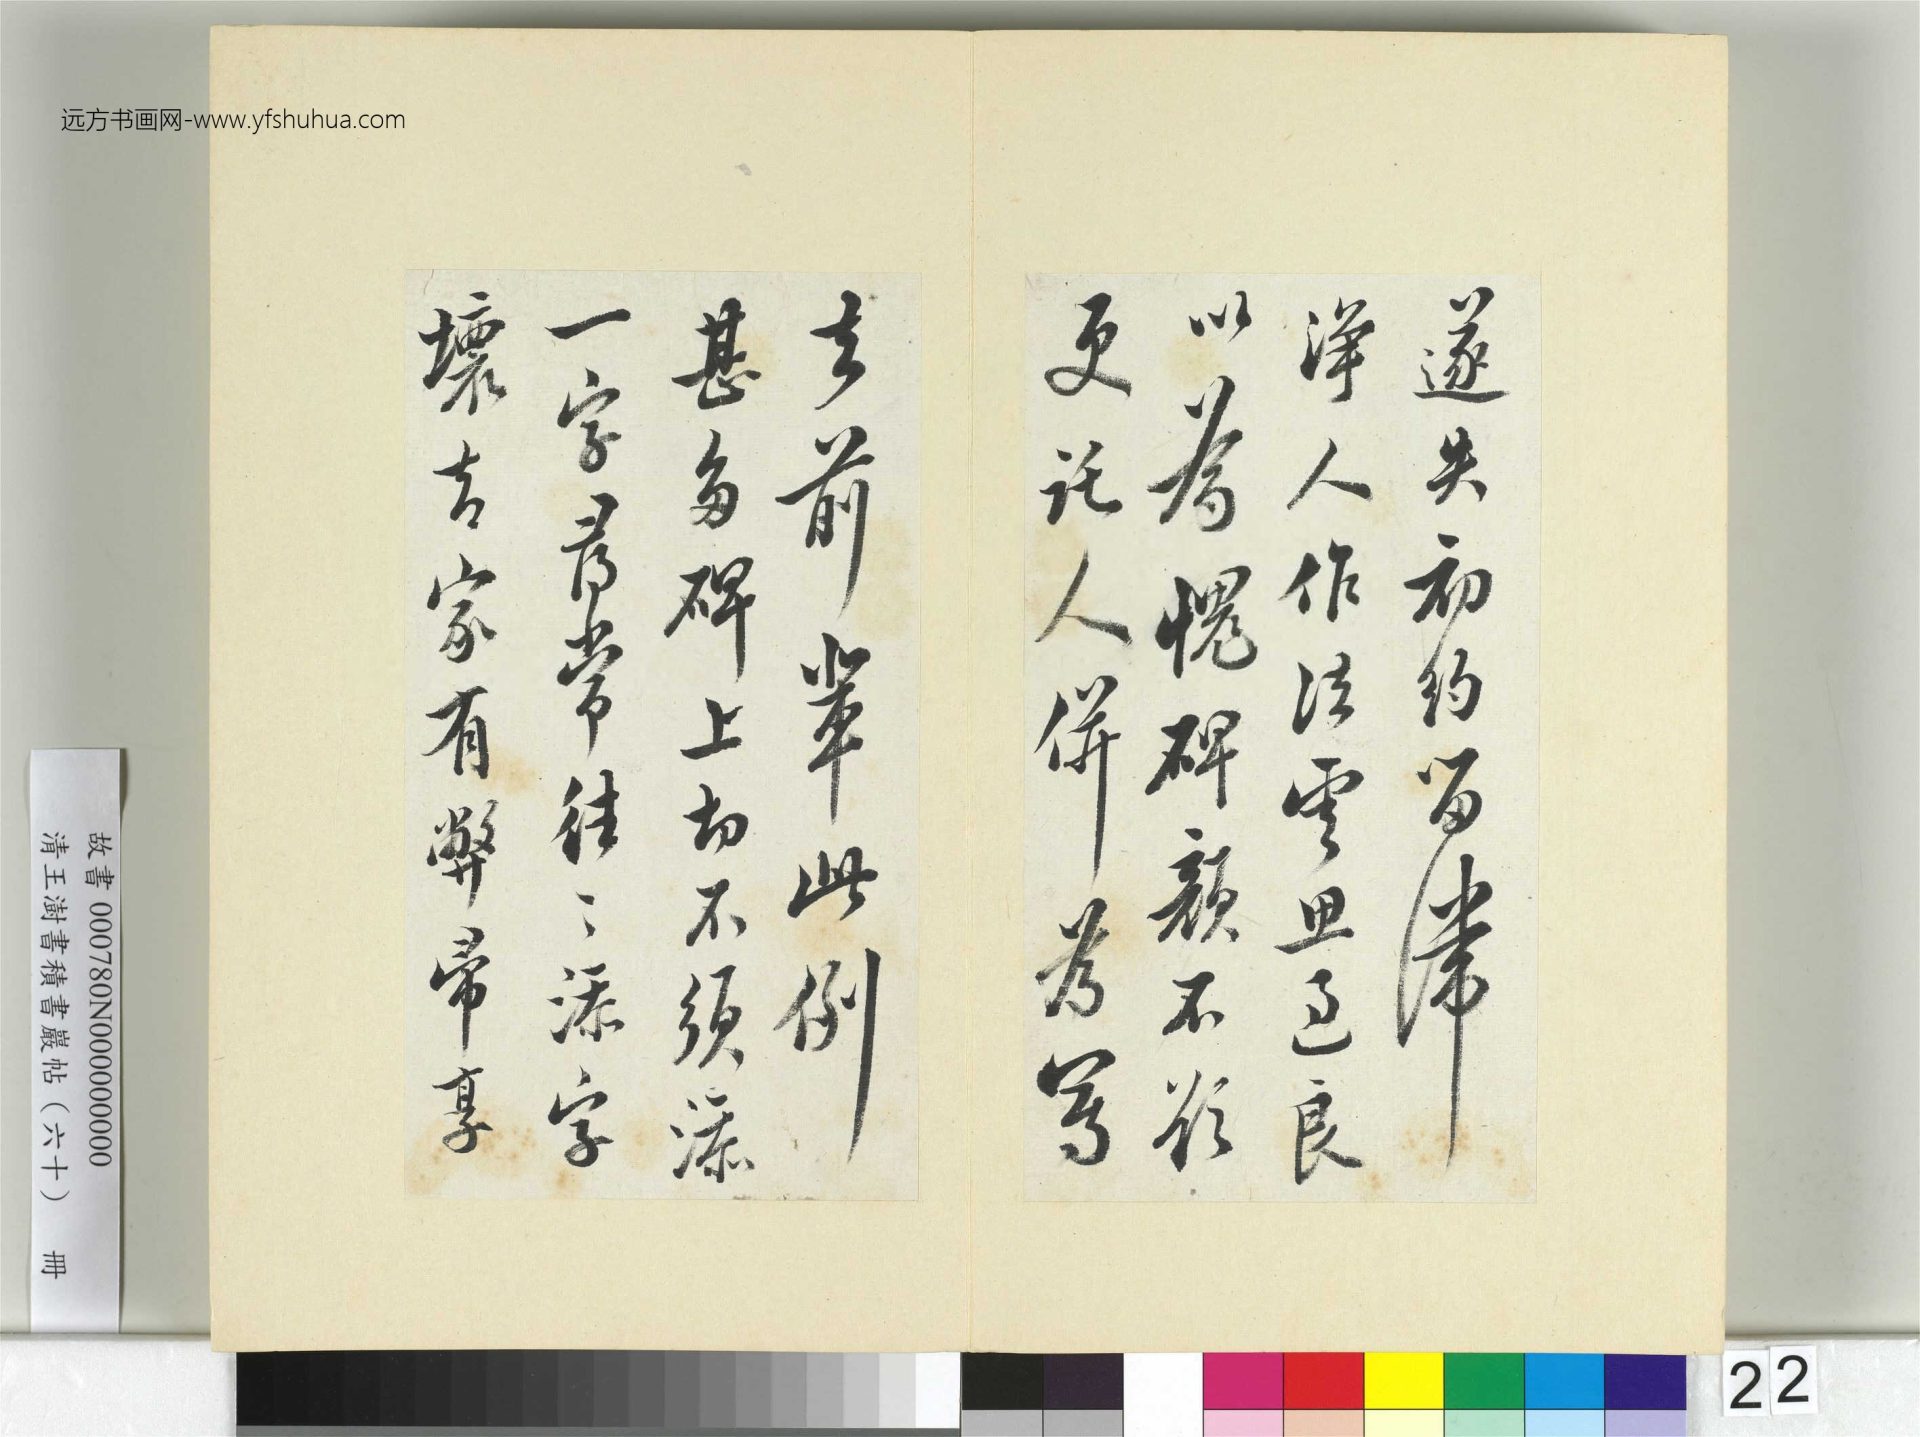 远方书画网-www.yfshuhua.com
遂失初約留滯
津人作法雲且過良
以為愧碑額不欲
更託人併為篆
去前輩此例
甚多碑上切不須添
一字尋常往々添字
壞古家有弊帚享
故書 000780N000000000
清王澍書積書巖帖(六十) 冊
22